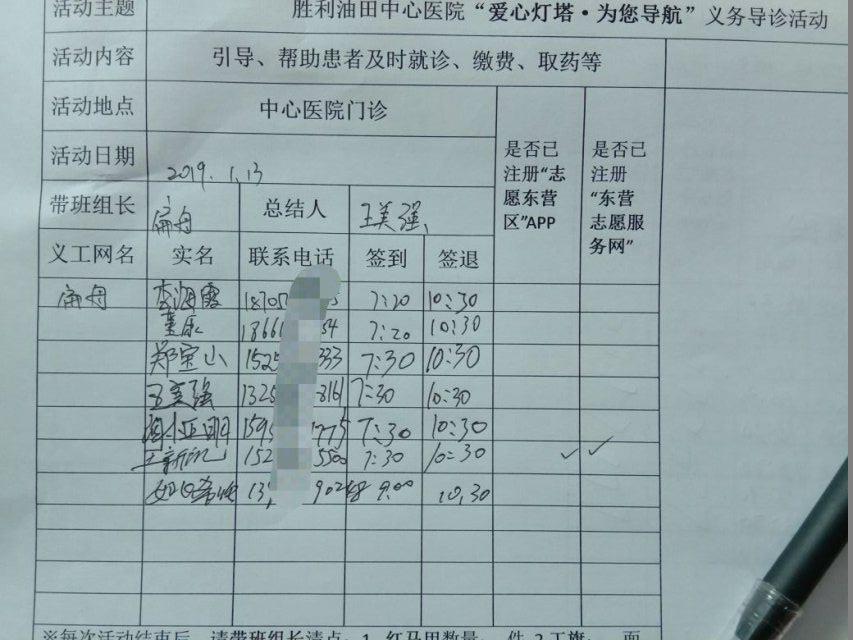 活动主题 胜利油田中心医院“爱心灯塔·为您导航”义务导诊活动
活动内容 引导、帮助患者及时就诊、缴费、取药等
活动地点 中心医院门诊
活动日期 2019.1.13
是否已注册“志愿东营区”APP
是否已注册“东营志愿服务网”
带班组长 扁舟 总结人 王美强
义工网名 实名 联系电话 签到 签退
扁舟 李海霞 18705 7:20 10:30
董康 1866 54 7:20 10:30
郑宝山 1525 333 7:30 10:30
王美强 1325 8161 7:30 10:30
周亚明 1595 7775 7:30 10:30
王新 152 5500 7:30 10:30 ✓ ✓
13 902 9:00 10,30
※每次活动结束后，请带班组长清点：1、红马甲数量： 件 2 工旗： 面